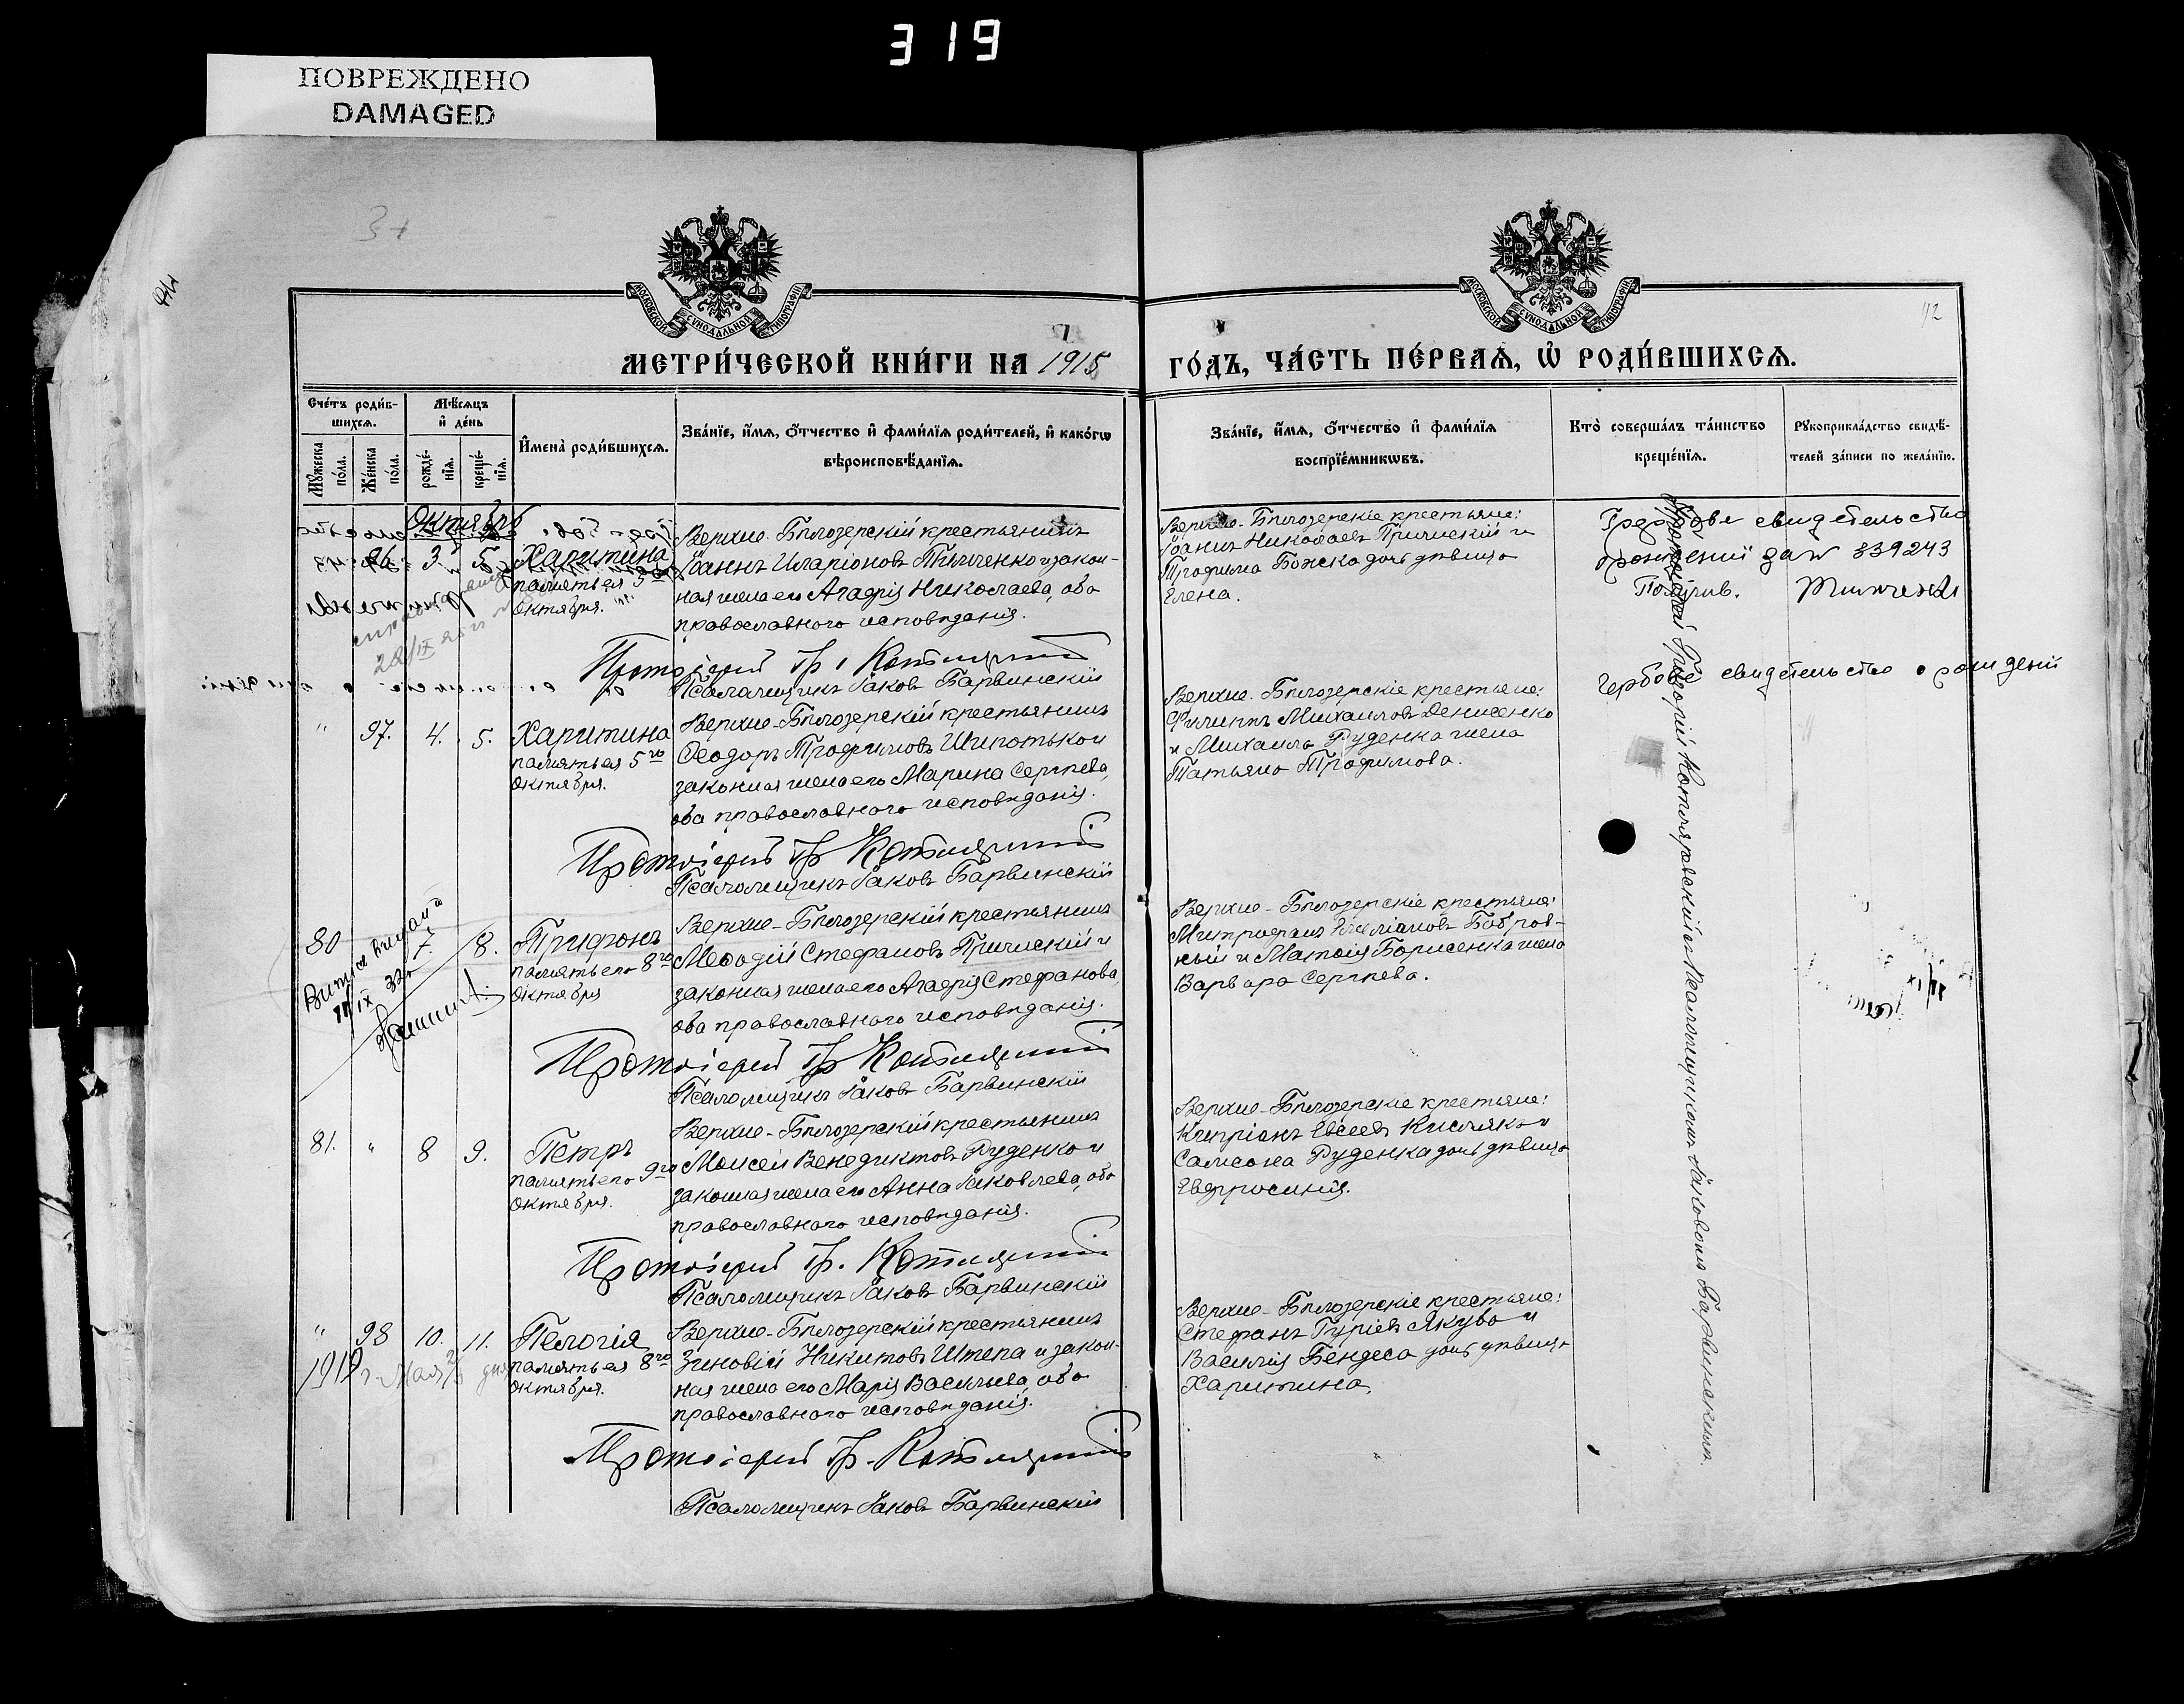 319
ПОВРЕЖДЕНО
DAMAGED
МОСКОВСКОЙ СѴНОДАЛЬНОЙ ТИПОГРАФІИ
МОСКОВСКОЙ СѴНОДАЛЬНОЙ ТИПОГРАФІИ
42
МЕТРИ́ЧЕСКОЙ КНИ́ГИ НА 1915
ГО́ДЪ, ЧА́СТЬ ПЕ́РВАѦ, Ѽ РОДИ́ВШИХСѦ.
Сче́тъ роди́в-
шихсѧ.
Мꙋ́жеска по́ла.
Же́нска по́ла.
Мѣ́сѧцъ
и҆ де́нь
рожде́-
нїѧ.
креще́-
нїѧ.
И҆мена̀ роди́вшихсѧ.
Зва́нїе, и҆́мѧ, ѻ҆́тчество и҆ фами́лїѧ роди́телей, и҆ како́гѡ
вѣроисповѣ́данїѧ.
Зва́нїе, и҆́мѧ, ѻ҆́тчество и҆ фами́лїѧ
воспрїе́мникѡвъ.
Кто̀ соверша́лъ та́инство
креще́нїѧ.
Рꙋкоприкла́дство свидѣ́-
телей за́писи по жела́нїю.
Октябрь
96. 3. 5. Харитина
память ея 5го
октября.
Верхне-Бѣлозерскій крестьянинъ
Іоаннъ Иларіоновъ Тимченко и закон-
ная жена его Агафія Николаева, оба
православнаго исповѣданія.
Протоіерей Гр. Котляревскій
Псаломщикъ Іаковъ Барвинскій
Верхне-Бѣлозерскіе крестьяне:
Іоаннъ Николаевъ Причискій и
Трофима Божска дочь дѣвица
Елена.
свидетельство
839243
Тимченко
" 97. 4. 5. Харитина
память ея 5го
октября.
Верхне-Бѣлозерскій крестьянинъ
Ѳеодоръ Трофимовъ Шипотько и
законная жена его Марина Сергѣева,
оба православнаго исповѣданія.
Протоіерей Гр. Котляревскій
Псаломщикъ Іаковъ Барвинскій
Верхне-Бѣлозерскіе крестьяне:
Филиппъ Михаиловъ Денисенко
и Михаила Руденка жена
Татьяна Трофимова.
Гербове свидетельство о рождениі
80 7. 8. Трифонъ
память его 8го
октября
Верхне-Бѣлозерскій крестьянинъ
Меѳодій Стефановъ Причискій и
законная жена его Агафія Стефанова,
оба православнаго исповѣданія.
Протоіерей Гр. Котляревскій
Псаломщикъ Іаковъ Барвинскій
Верхне-Бѣлозерскіе крестьяне:
Митрофанъ Емеліановъ Бобров-
ный и Матѳія Борисенка жена
Варвара Сергѣева.
81. " 8 9. Петръ
память его 9го
октября.
Верхне-Бѣлозерскій крестьянинъ
Моисей Венедиктовъ Руденко и
законная жена его Анна Іаковлева, оба
православнаго исповѣданія.
Протоіерей Гр. Котляревскій
Псаломщикъ Іаковъ Барвинскій
Верхне-Бѣлозерскіе крестьяне:
Кипріанъ Евсеевъ Кисляко и
Самсона Руденка дочь дѣвица
Евфросинія.
" 98 10. 11. Пелагія
память ея 8го
октября.
Верхне-Бѣлозерскій крестьянинъ
Зиновій Никитовъ Штепа и закон-
ная жена его Марія Васильева, оба
православнаго исповѣданія.
Протоіерей Гр. Котляревскій
Псаломщикъ Іаковъ Барвинскій
Верхне-Бѣлозерскіе крестьяне:
Стефанъ Гуріевъ Якуба и
Василія Бендеса дочь дѣвица
Харитина.
Протоіерей Григорій Котляревскій съ Псаломщикомъ Іаковомъ Барвинскимъ.